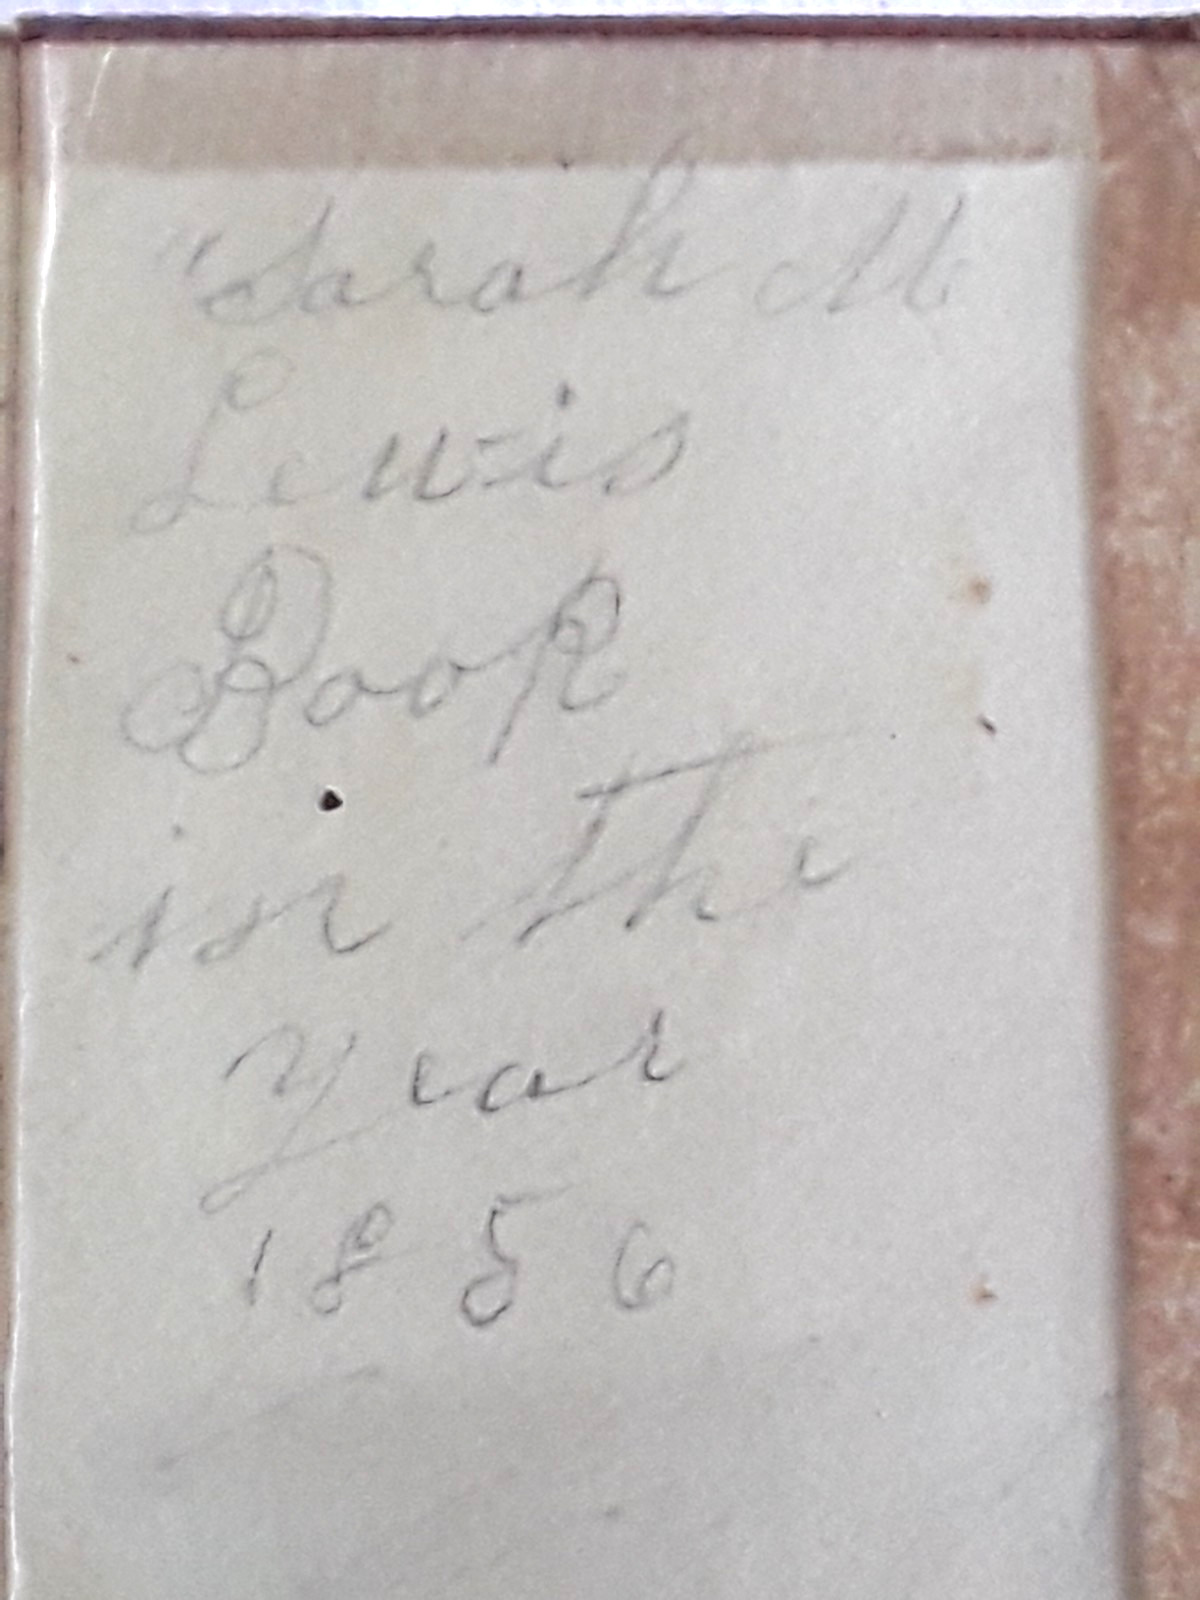 Sarah M
Lewis
Book
in the
year
1856